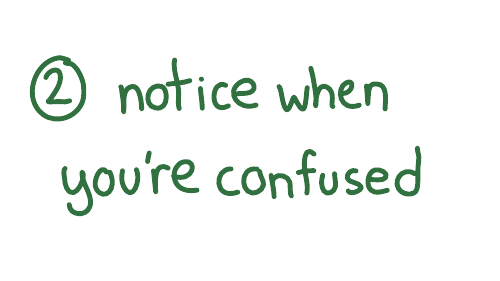 ② notice when
you're confused